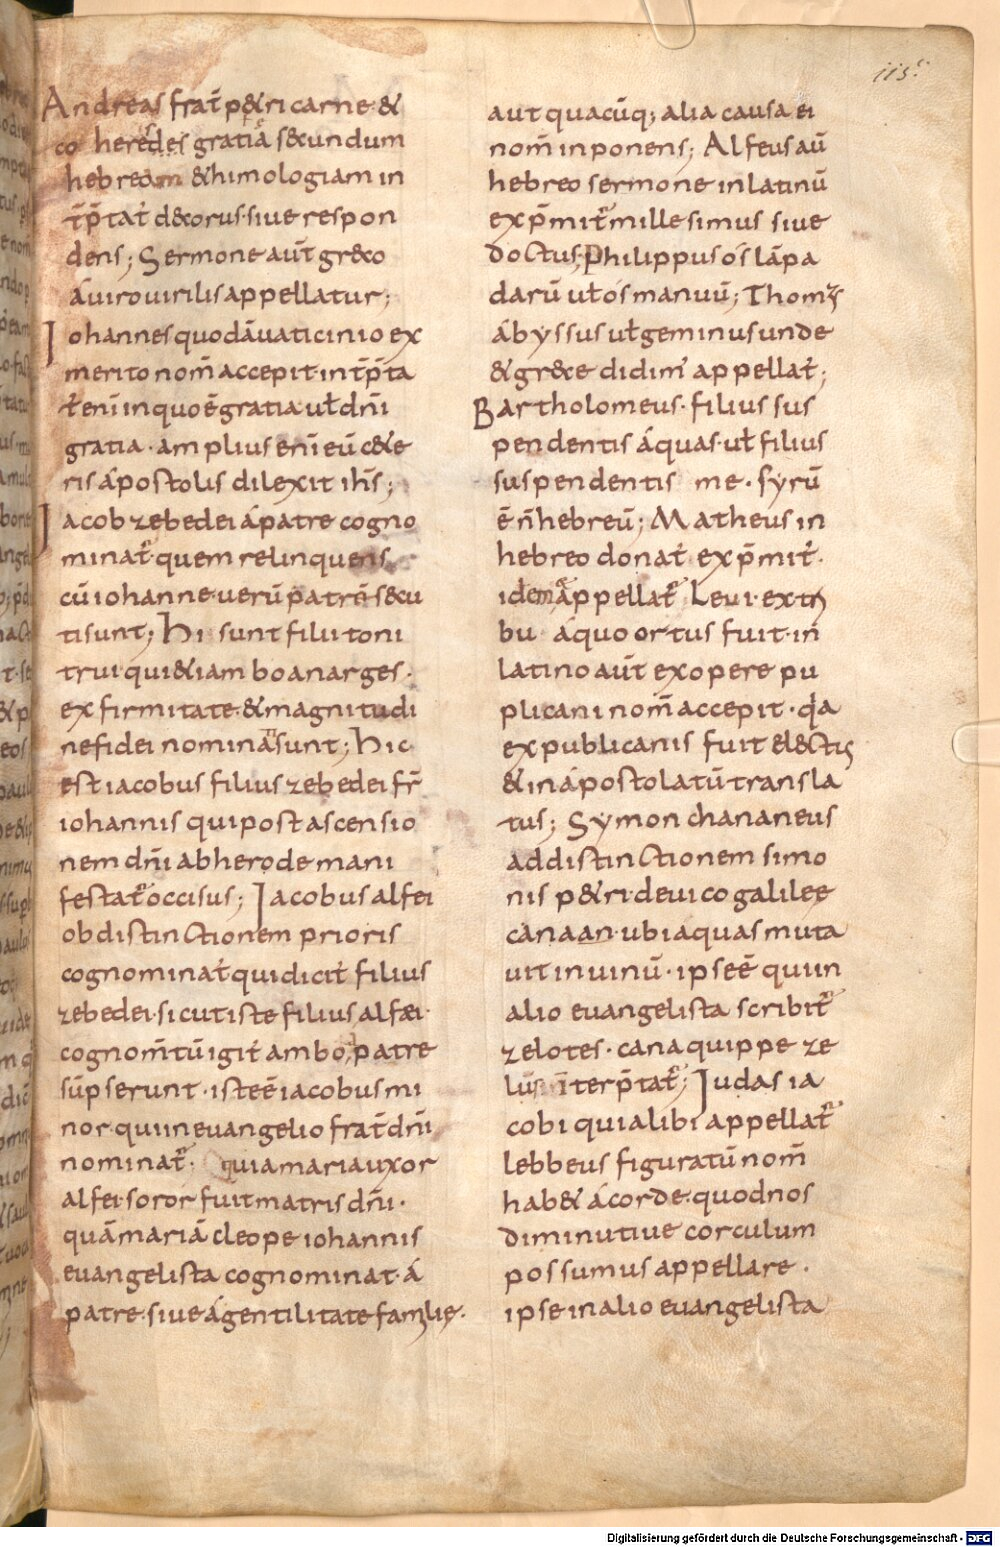 115.
Andreas frat̄ p&ri carne &
co heredes gratiā s&cundum
hebream &himologiam in
t̄p̄tat̄ d&corus siue respon
dens; Sermone aut̄ gr&co
áuiro uirilis appellatur;
Iohannes quodā uaticinio ex
merito nom̄ accepit· int̄p̄ta
t̄ enī inquo ē gratia ut̄ dn̄i
gratia· amplius enī eū c&e
ris ápostolis dilexit ih̄s;
Iacob zebedei á patre cogno
minat̄ quem relinquens
cū iohanne uerū patrē s&cu
ti sunt; Hi sunt filii toni
trui qui &iam boanarges·
ex firmitate &magnitudi
ne fidei nominati sunt; Hic
est iacobus filius zebedei fr̄
iohannis qui post ascensio
nem dn̄i ab herode mani
festat̄ occisus; Iacobus alfei
ob distinctionem prioris
cognominat̄ qui dicit̄ filius
zebedei· sicut iste filius alfæi·
cognom̄tū igit̄ ambo, patre
sūpserunt· iste ē iacobus mi
nor· qui in euangelio frat̄ dn̄i
nominat̄· quia maria uxor
alfei· soror fuit matris dn̄i·
quā mariā cleope iohannis
euangelista cognominat· á
patre· siue á gentilitate familie·
aut quacūq; alia causa ei
nom̄ inponens; Alfeus aū
hebreo sermone in latinū
exp̄mit̄ millesimus siue
doctus; Philippus ós lāpa
darū ut̄ ós manuū; Thomas
ábyssus ut̄ geminus unde
&gr&ce didim' appellat̄;
Bartholomeus· filius sus
pendentis áquas· ut̄ filius
suspendentis me· syrū
ē n̄ hebreū; Matheus in
hebreo donat̄ exp̄mit̄·
idem appellat̄ Leui· ex tri
bu áquo ortus fuit· in
latino aut̄ ex opere pu
plicani nom̄ accepit· q̇a
ex publicanis fuit el&ctus
&in ápostolatū transla
tus; Symon chananeus
ad distinctionem simo
nis p&ri· de uico galilee
canaan· ubi aquas muta
uit in uinū· ipse ē qui in
alio euangelista scribit̄
zelotes· cana quippe ze
lus īterp̄tat̄; Iudas ia
cobi qui alibi appellat̄
lebbeus figuratū nom̄
hab& á corde· quod nos
diminutiue corculum
possumus appellare·
ipse in alio euangelista
Digitalisierung gefördert durch die Deutsche Forschungsgemeinschaft - DFG